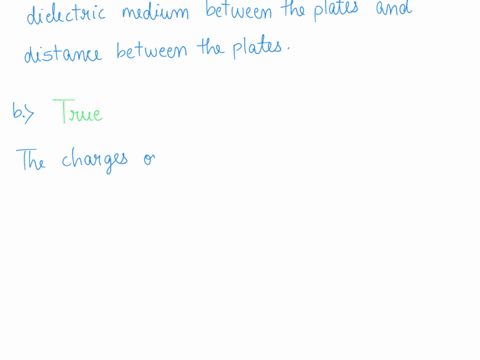 dielectric medium between the plates and
distance between the plates.
b.> True
The charges o